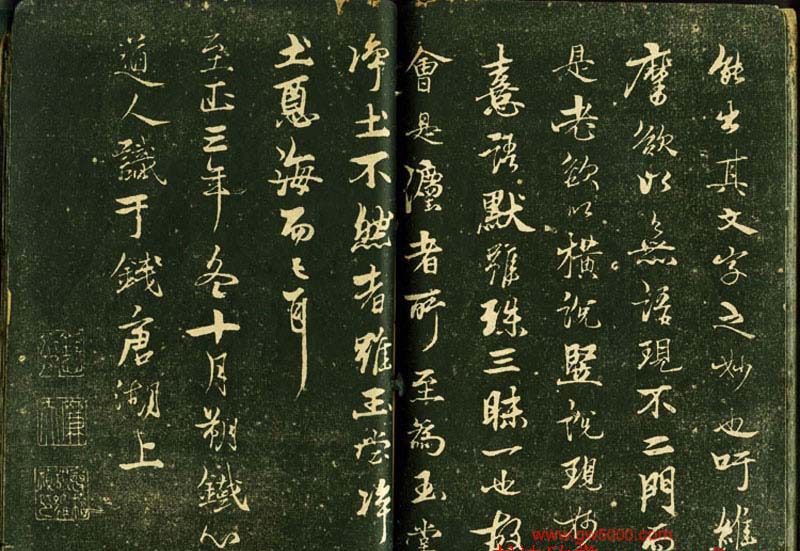 能出其文字之妙也吁維
摩欲以無語現不二門
是老欲以橫說竪說現
憙語默雖殊三昧一也
會是瀍者所至為玉堂
淨土不然者雖玉堂淨
土惡海而已耳
至正三年冬十月朔鐵心
道人識于錢唐湖上
www.gw5000.com